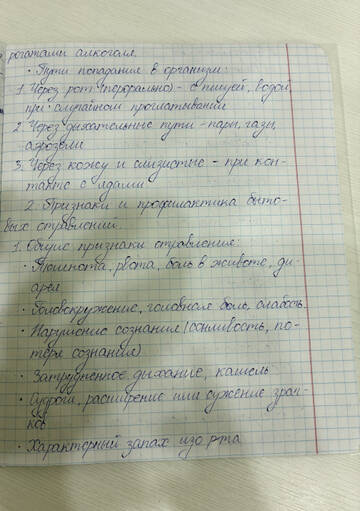 рогатами алкоголя.
• Пути попадания в организм:
1. Через рот (перорально) - с пищей, водой,
при случайном проглатывании
2. Через дыхательные пути - пары, газы,
аэрозоли
3. Через кожу и слизистые - при кон-
такте с ядами
2. Признаки и профилактика быто-
вых отравлений.
1. Общие признаки отравления:
• Тошнота, рвота, боль в животе, ди-
арея
• Головокружение, головная боль, слабость
• Нарушение сознания (сонливость, по-
теря сознания)
• Затрудненное дыхание, кашель
• Судороги, расширение или сужение зрач-
ков
• Характерный запах изо рта